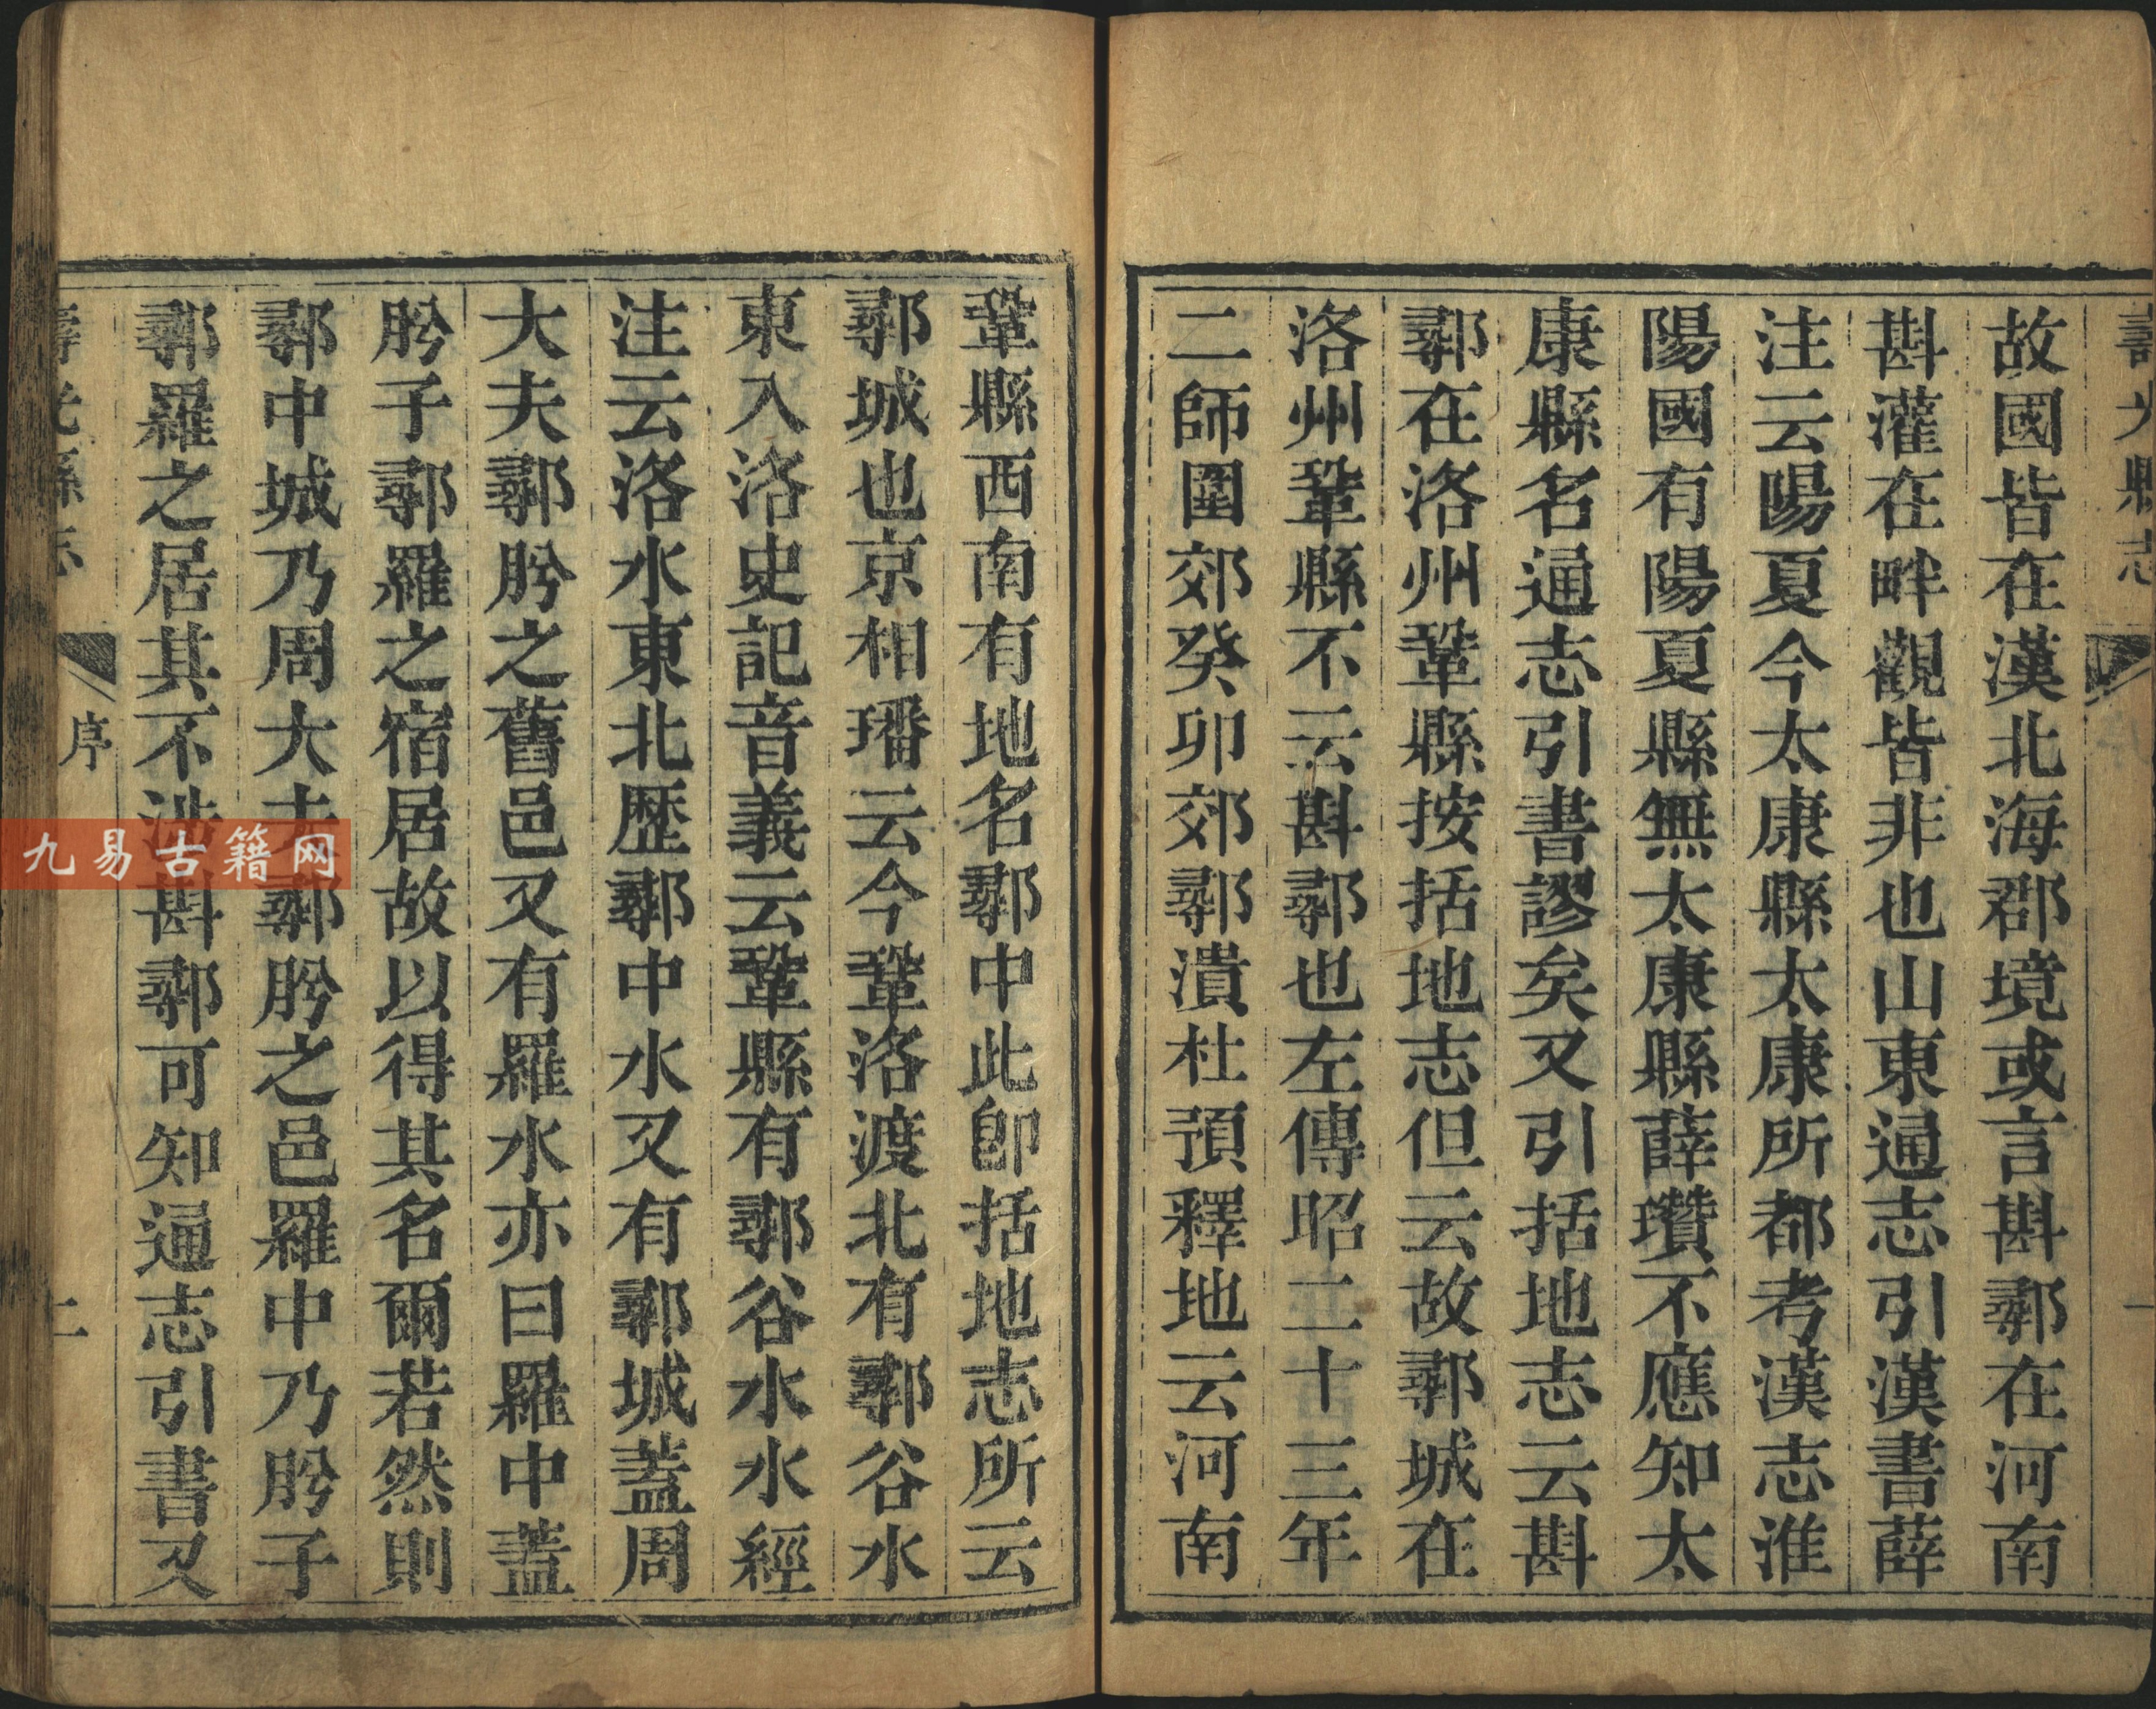 壽光縣志
故國皆在漢北海郡境或言斟鄩在河南
斟灌在畔觀皆非也山東通志引漢書薛
注云陽夏今太康縣太康所都考漢志淮
陽國有陽夏縣無太康縣薛瓚不應知太
康縣名通志引書謬矣又引括地志云斟
鄩在洛州鞏縣按括地志但云故鄩城在
洛州鞏縣不云斟鄩也左傳昭二十三年
二師圍郊癸卯郊鄩潰杜預釋地云河南
鞏縣西南有地名鄩中此卽括地志所云
鄩城也京相璠云今鞏洛渡北有鄩谷水
東入洛史記音義云鞏縣有鄩谷水水經
注云洛水東北歷鄩中水又有鄩城蓋周
大夫鄩肸之舊邑又有羅水亦曰羅中蓋
肸子鄩羅之宿居故以得其名爾若然則
鄩中城乃周大夫鄩肸之邑羅中乃肸子
鄩羅之居其不涉斟鄩可知通志引書又
壽光縣志 序 二
九易古籍网